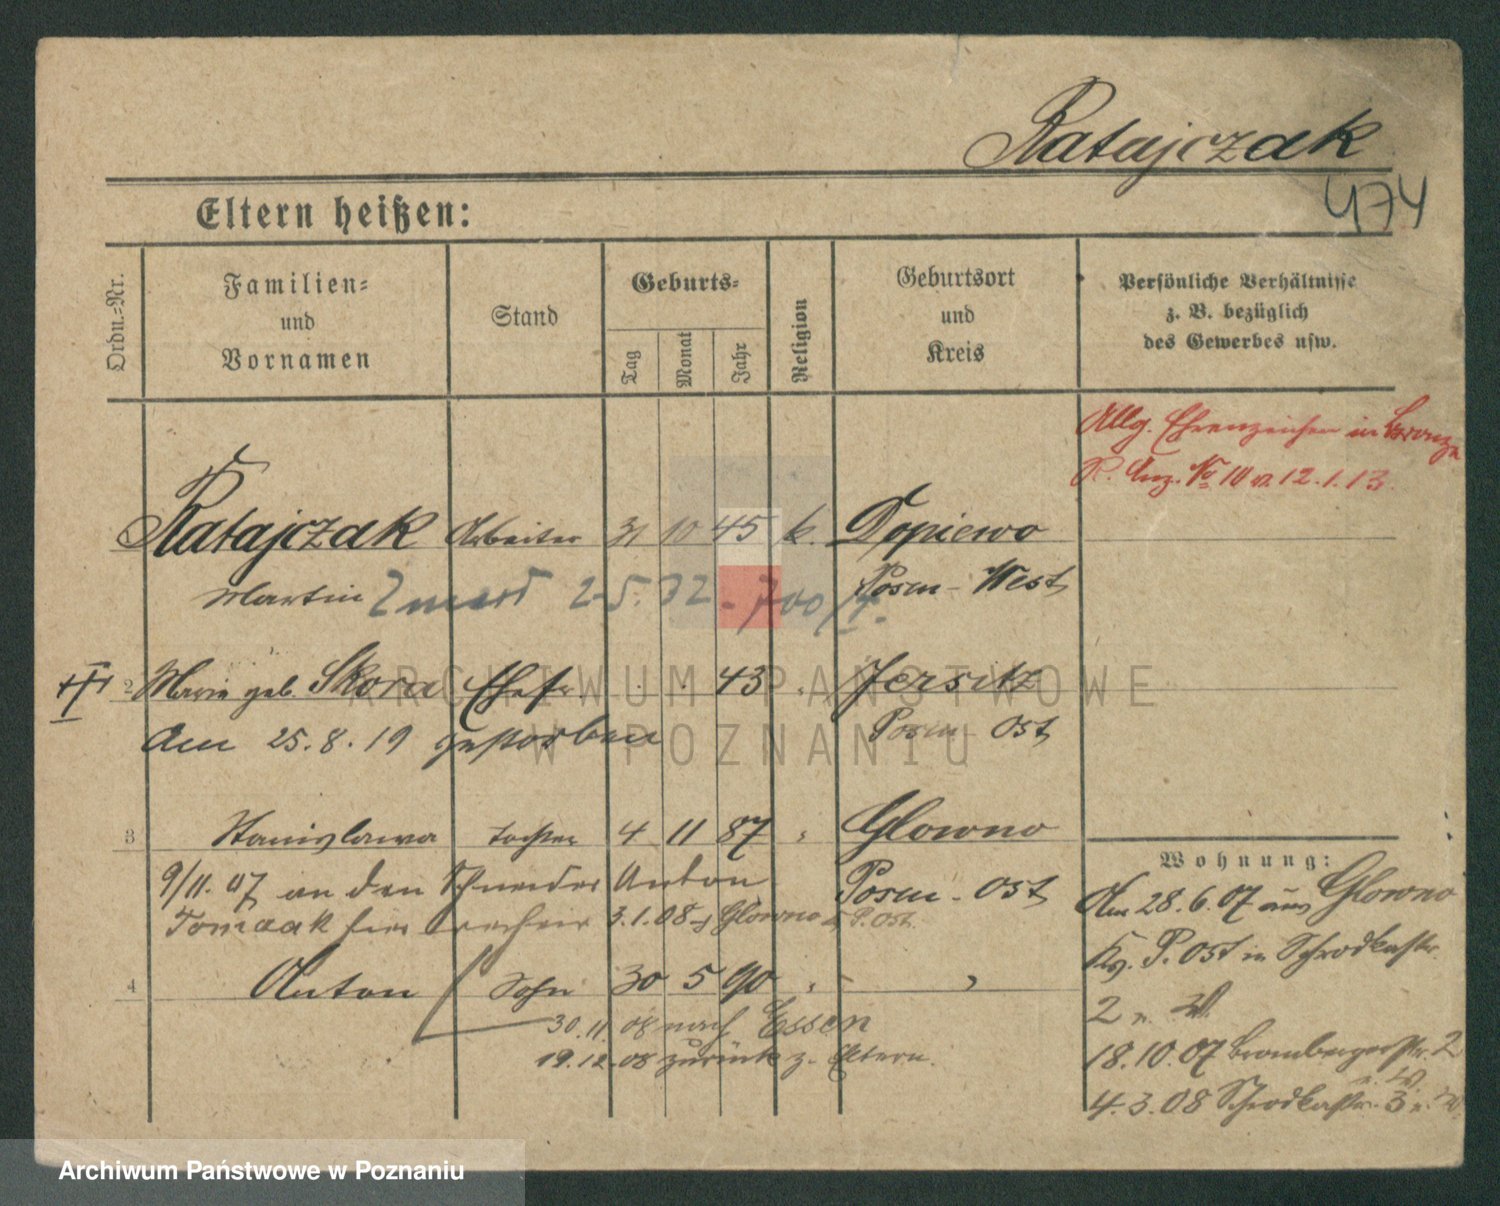 Ratajczak
474
Eltern heißen:
Ordn.-Nr.
Familien- und Vornamen
Stand
Geburts-
Tag
Monat
Jahr
Religion
Geburtsort und Kreis
Persönliche Verhältnisse z. B. bezüglich des Gewerbes usw.
Allg. Ehrenzeichen in Bronze
R. Anz. No 10 v. 12.1.13.
Ratajczak Arbeiter 31 10 45 k. Dopiewo
Martin 2-5.32 Posen-West
2 Marie geb. Skora Ehefr 43 Jersitz
Am 25.8.19 gestorben Posen Ost
3 Stanislawa Tochter 4 11 87 Glowno
9/11.07 an den Schneider Anton Posen-Ost
Tomczak hier 3.1.08 Glowno P.Ost.
4 Anton Sohn 30 5 90
30.11.08 nach Essen
19.12.08 zurück z. Eltern.
Wohnung:
Am 28.6.07 aus Glowno
Kr. P. Ost in Schrodkastr.
2
18.10.07 Brombergerstr. 2
4.3.08 Schrodkastr. 3
ARCHIWUM PAŃSTWOWE
W POZNANIU
Archiwum Państwowe w Poznaniu